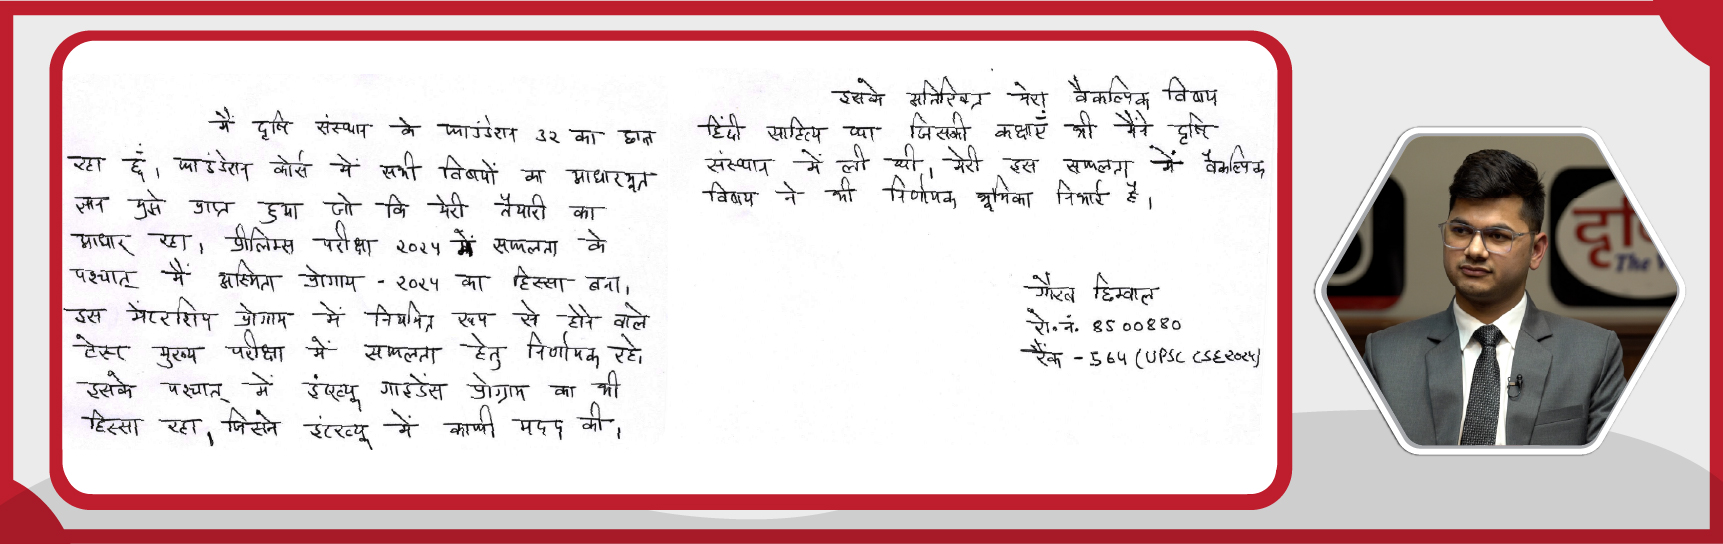 मैं दृष्टि संस्थान के फाउंडेशन 32 का छात्र
रहा हूं, फाउंडेशन कोर्स में सभी विषयों का आधारभूत
ज्ञान मुझे प्राप्त हुआ जो कि मेरी तैयारी का
आधार रहा, प्रीलिम्स परीक्षा २०२५ में सफलता के
पश्चात् मैं अस्मिता प्रोगाम - २०२५ का हिस्सा बना,
इस मेंटरशिप प्रोगाम में नियमित रूप से होने वाले
टेस्ट मुख्य परीक्षा में सफलता हेतु निर्णायक रहे,
इसके पश्चात् में इंटरव्यू गाइडेंस प्रोग्राम का भी
हिस्सा रहा, जिसने इंटरव्यू में काफी मदद की,
इसके अतिरिक्त मेरा वैकल्पिक विषय
हिंदी साहित्य था जिसकी कक्षाएँ भी मैंने दृष्टि
संस्थान में ली थी, मेरी इस सफलता में वैकल्पिक
विषय ने भी निर्णायक भूमिका निभाई है,
गौरव छिम्वाल
रो.नं. 8500880
रैंक - 564 (UPSC CSE २०२५)
दृष्टि
The V